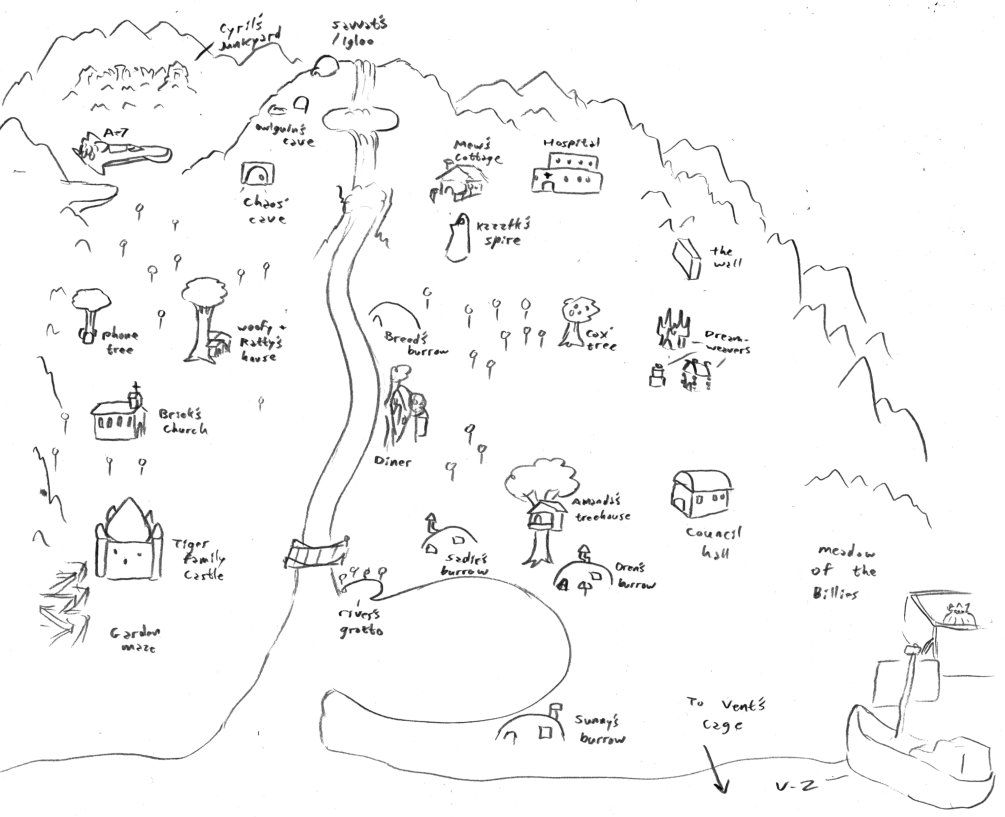 Cyril's
Junkyard
Sawat's
Igloo
A-7
owlguin's
cave
Mew's
Cottage
Hospital
Chaos'
cave
Kzzztk's
spire
the
wall
phone
tree
Woofy +
Ratty's
house
Breed's
burrow
Cox'
tree
Dream-
weavers
Brick's
Church
Diner
Amanda's
treehouse
Council
hall
Tiger
Family
Castle
Sadie's
burrow
Oren's
burrow
meadow
of the
Billies
Garden
maze
river's
grotto
Sunny's
burrow
To Vent's
cage
V-2